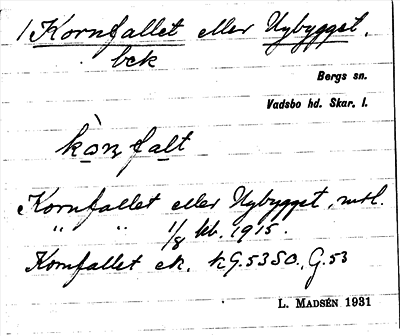 1 Kornfallet eller Nybygget,
bck
Bergs sn.
Vadsbo hd. Skar. l.
Kornfallet eller Nybygget, mtl.
" " 1/8 kb. 1915.
Kornfallet ek. hG.53SO., G.53
L. MADSÉN 1931